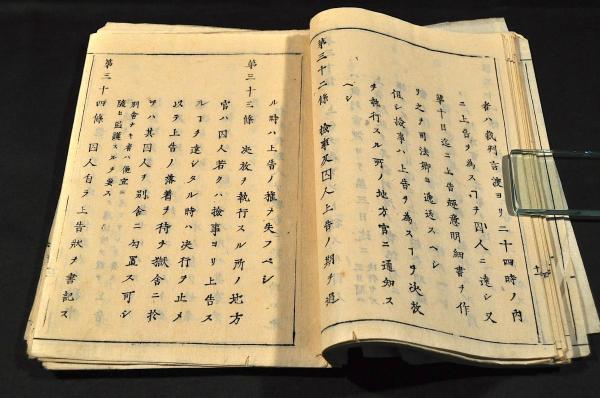 者ハ裁判言渡ヨリ二十四時ノ内
ニ上告ヲ為スヿヲ囚人ニ達シ又
第十日迄ニ上告趣意明細書ヲ作
リ之ヲ司法卿ニ逓送スベシ
但シ検事ハ上告ヲ為スヿヲ決放
ヲ執行スル所ノ地方官ニ通知ス
ベシ
第三十二條 檢事又囚人上告ノ期ヲ過
ル時ハ上告ノ權ヲ失フベシ
第三十三條 决放ヲ執行スル所ノ地方
官ハ囚人若クハ檢事ヨリ上告ス
ルヿヲ達シタル時ハ决行ヲ止メ
以テ上告ノ落着ヲ待チ獄舎ニ於
テハ其囚人ヲ別舎ニ勾置ス可シ
別舎ナキ者ハ便宜
ニ監護スルヲ要ス
第三十四條 囚人自ラ上告狀ヲ書記ス